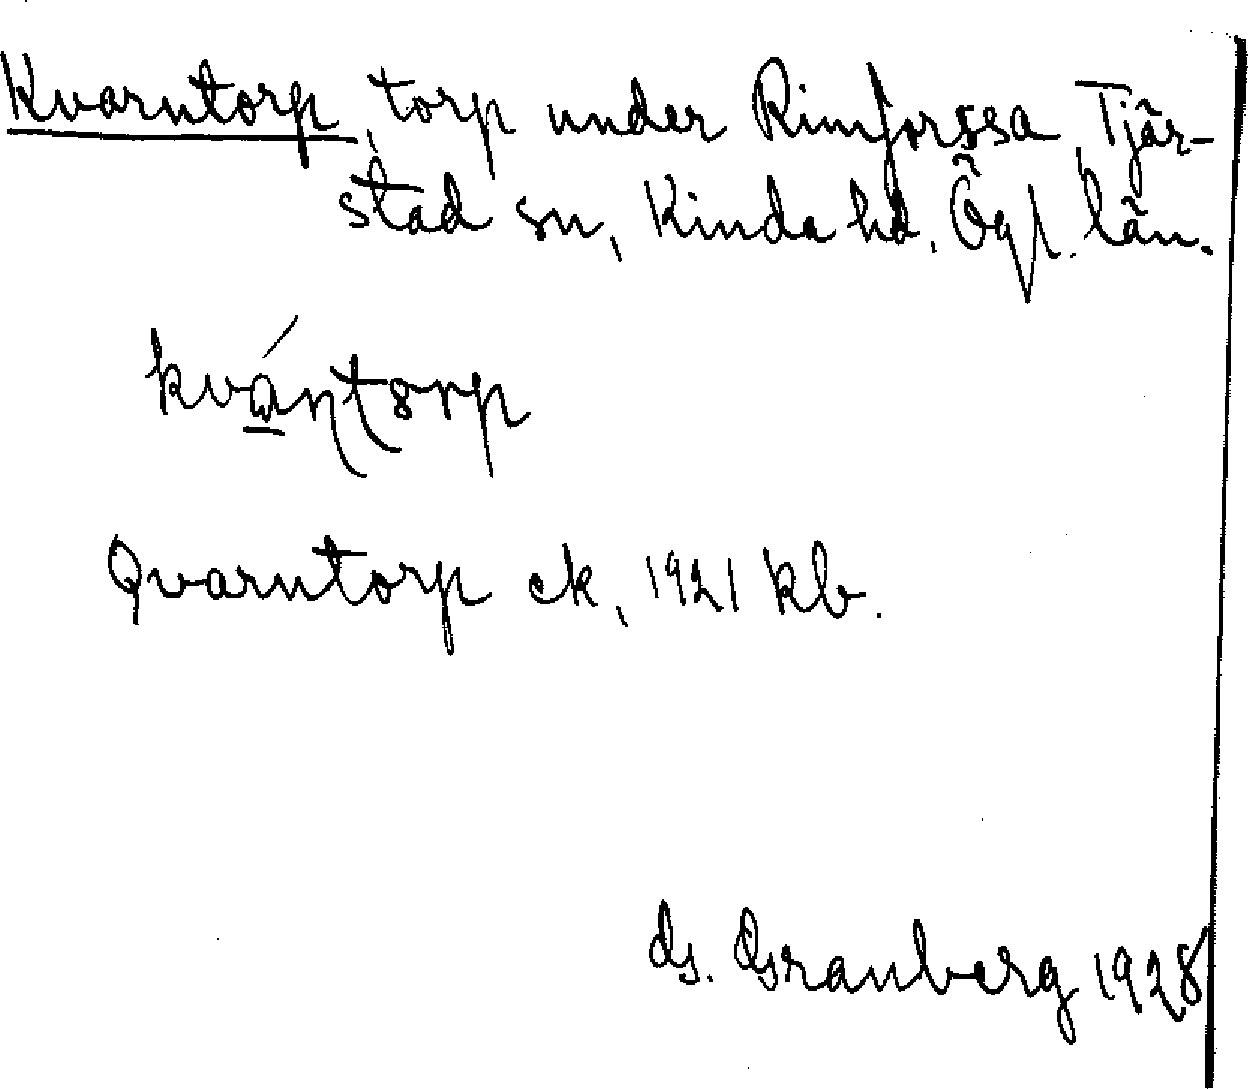 Kvarntorp, torp under Rimforssa, Tjär-
stad sn, Kinda hd. Ögl. län.
kvántorp
Qvarntorp ek, 1921 kb.
G. Granberg 1928